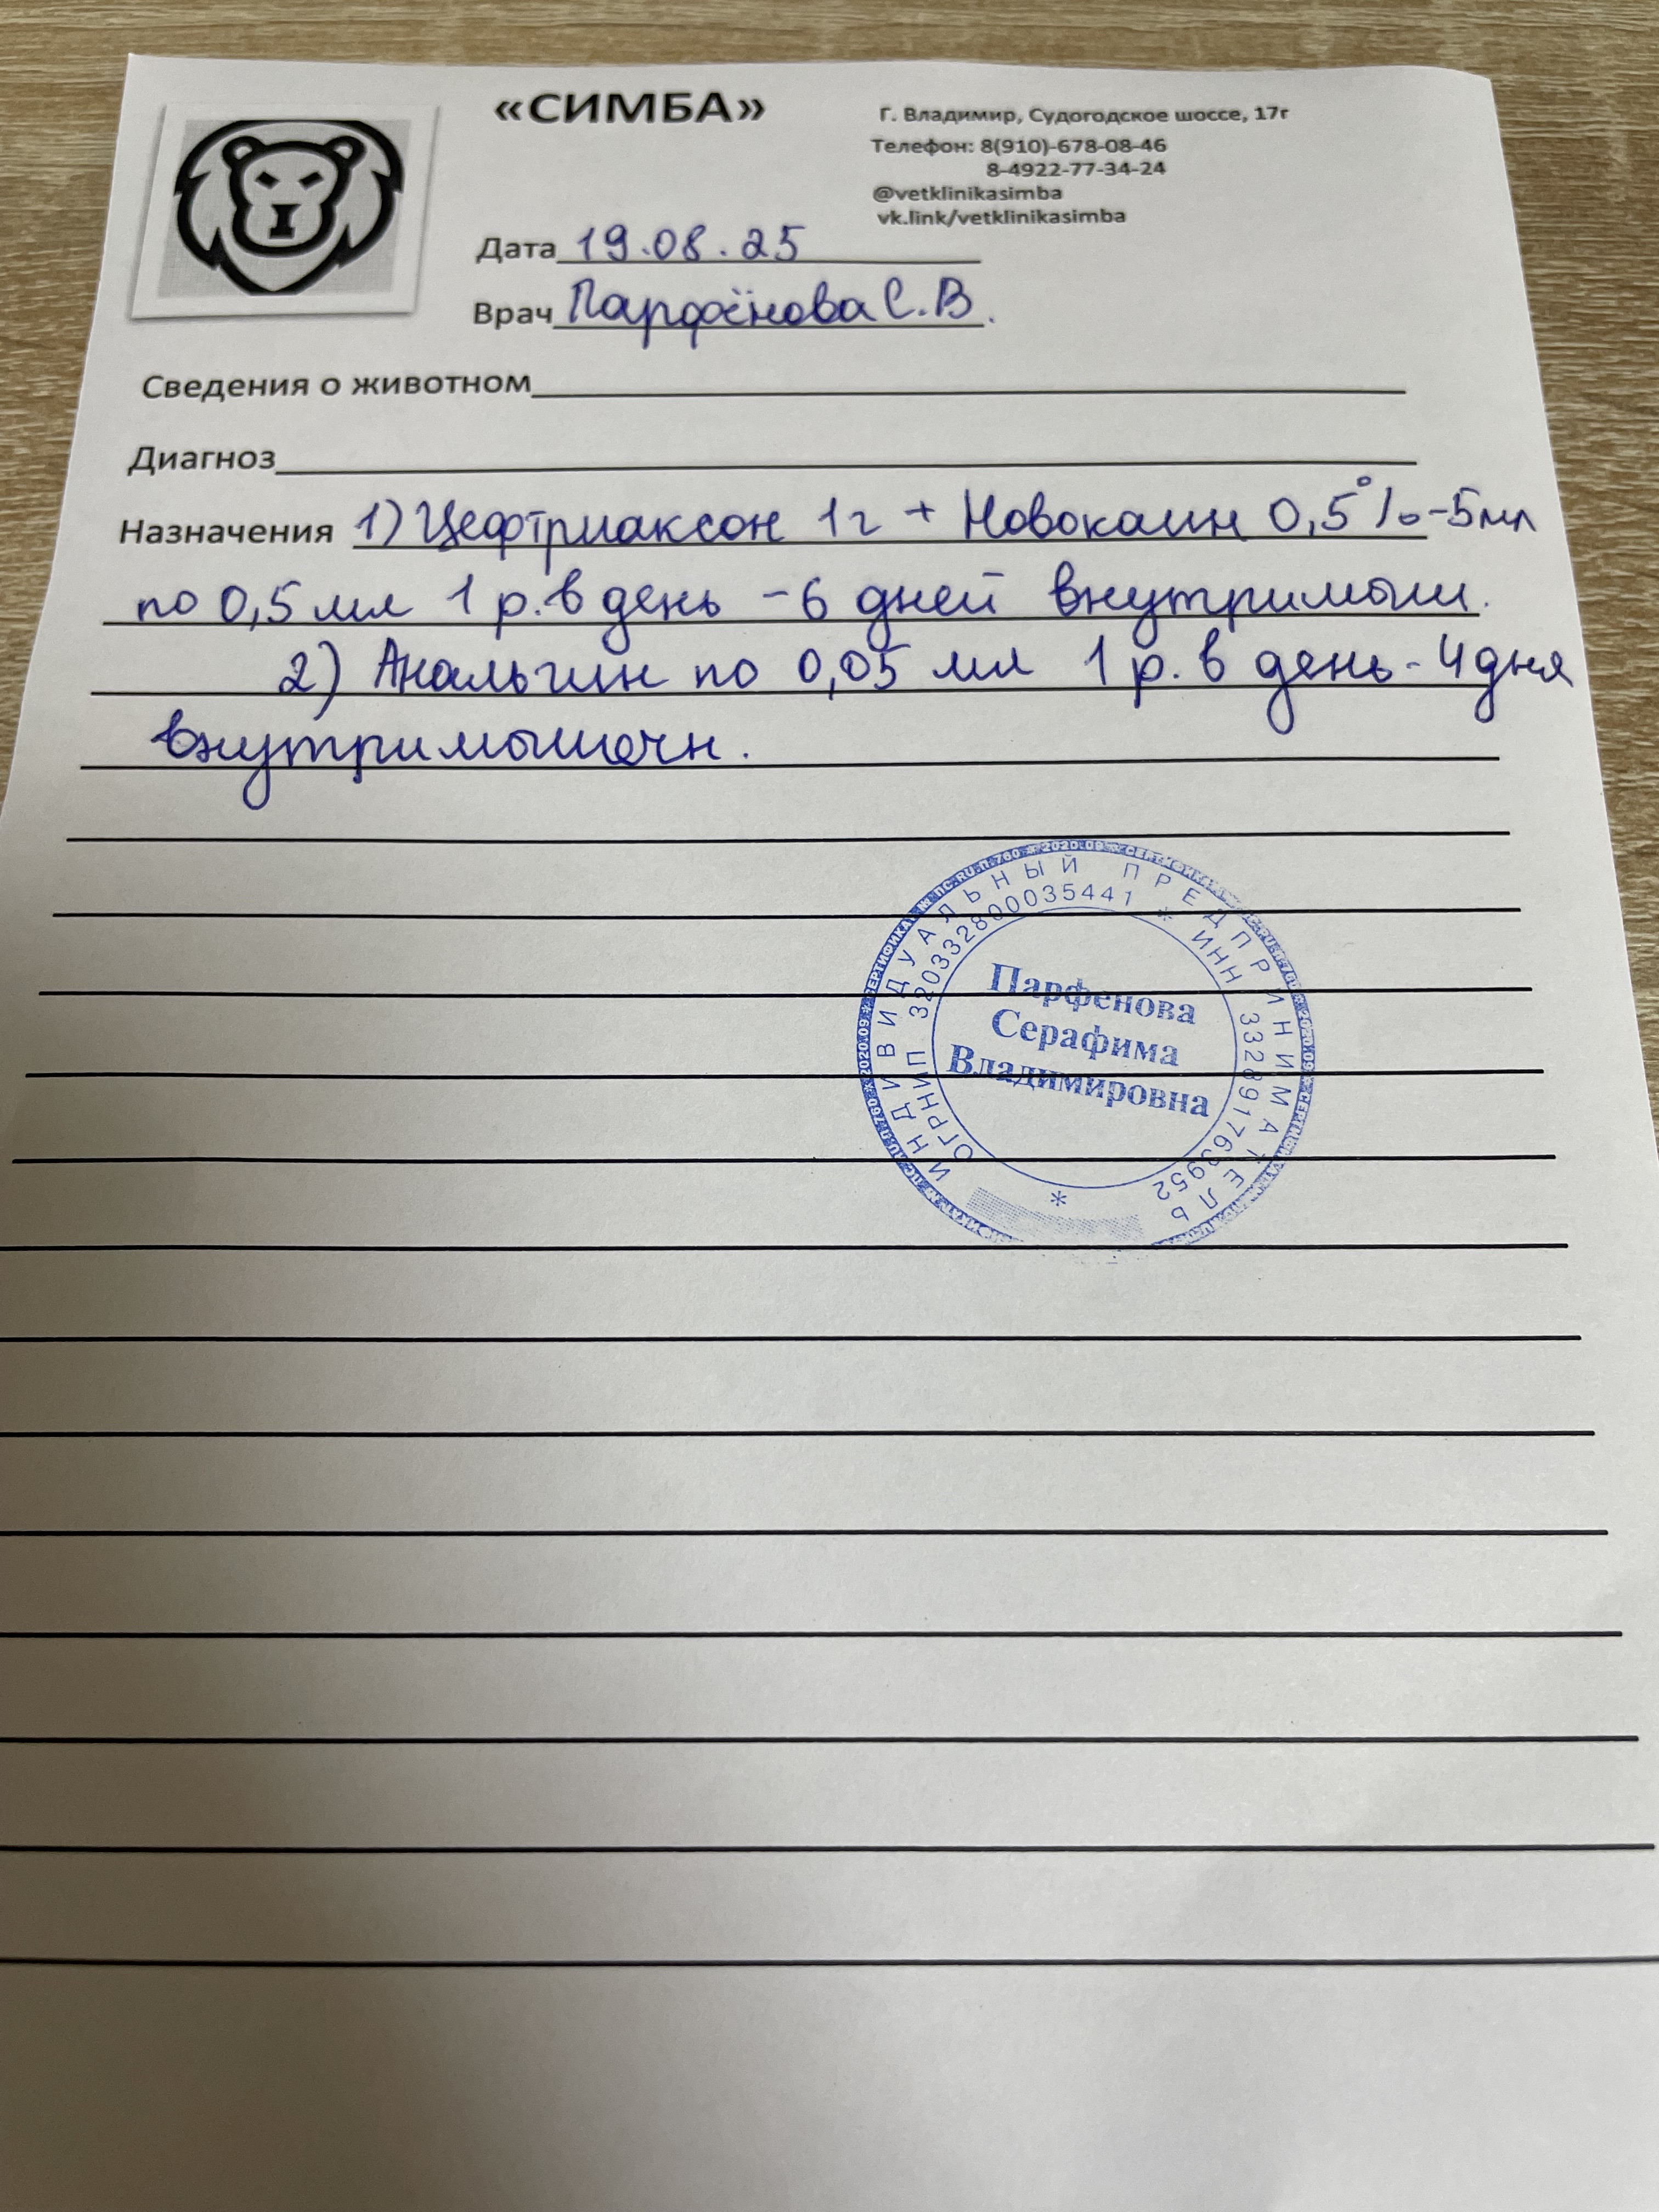 «СИМБА»
Г. Владимир, Судогодское шоссе, 17г
Телефон: 8(910)-678-08-46
8-4922-77-34-24
@vetklinikasimba
vk.link/vetklinikasimba
Дата 19.08.25
Врач Парфёнова С.В.
Сведения о животном
Диагноз
Назначения 1) Цефтриаксон 1г + Новокаин 0,5% -5мл
по 0,5 мл 1 р. в день - 6 дней внутримыш.
2) Анальгин по 0,05 мл 1 р. в день - 4 дня
внутримышечн.
ИНДИВИДУАЛЬНЫЙ ПРЕДПРИНИМАТЕЛЬ
ОГРНИП 320332800035441 * ИНН 332891763952
Парфенова
Серафима
Владимировна
*